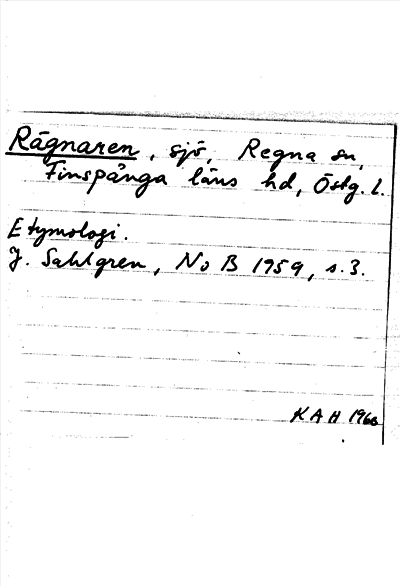 Rägnaren, sjö, Regna sn,
Finspånga läns hd, Östg. l.
Etymologi.
J. Sahlgren, NoB 1959, s. 3.
KAH 1960